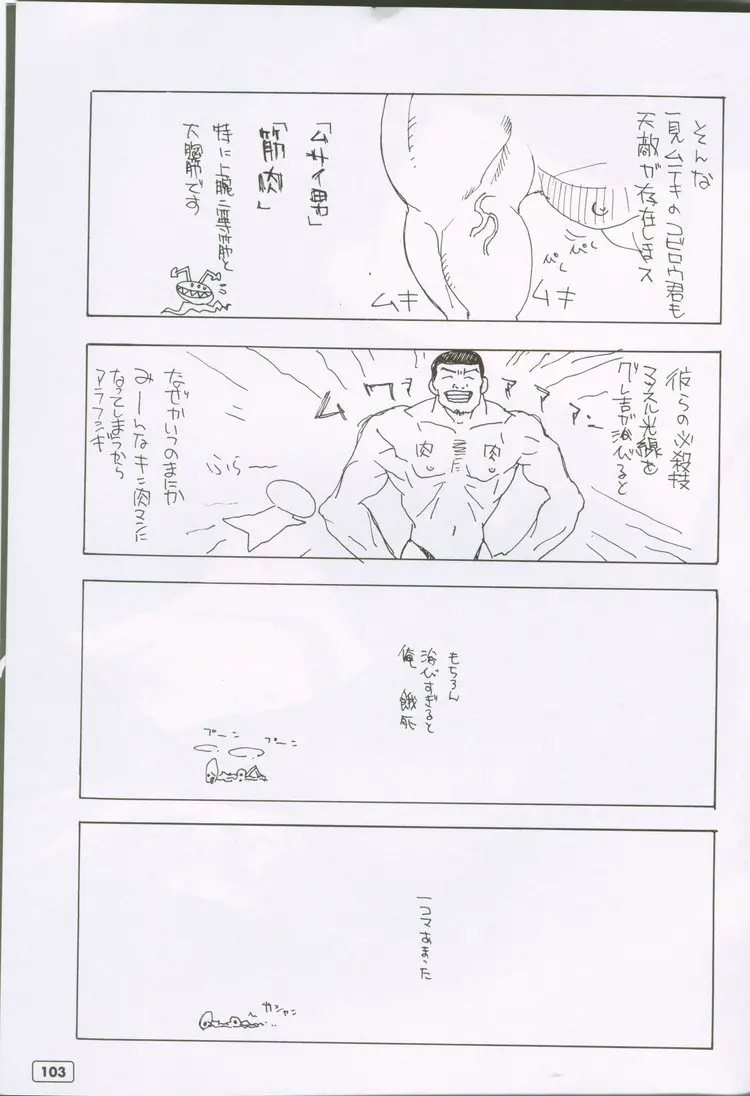 そんな
一見ムテキのコビロウ君も
天敵が存在しまス
ぴく
ぴく
ムキ
ムキ
「ムサイ男」
「筋肉」
特に上腕二等筋と
大胸筋です
彼らの必殺技
マッスル光線を
グレ吉が浴びると
ムワァアアアン
肉
肉
ふら〜〜
なぜかいつのまにか
み〜んなキン肉マンに
なってしまうから
アラフシギ
もちろん
浴びすぎると
俺 餓死
プーン
プーン
一コマあまった
カシャン
103